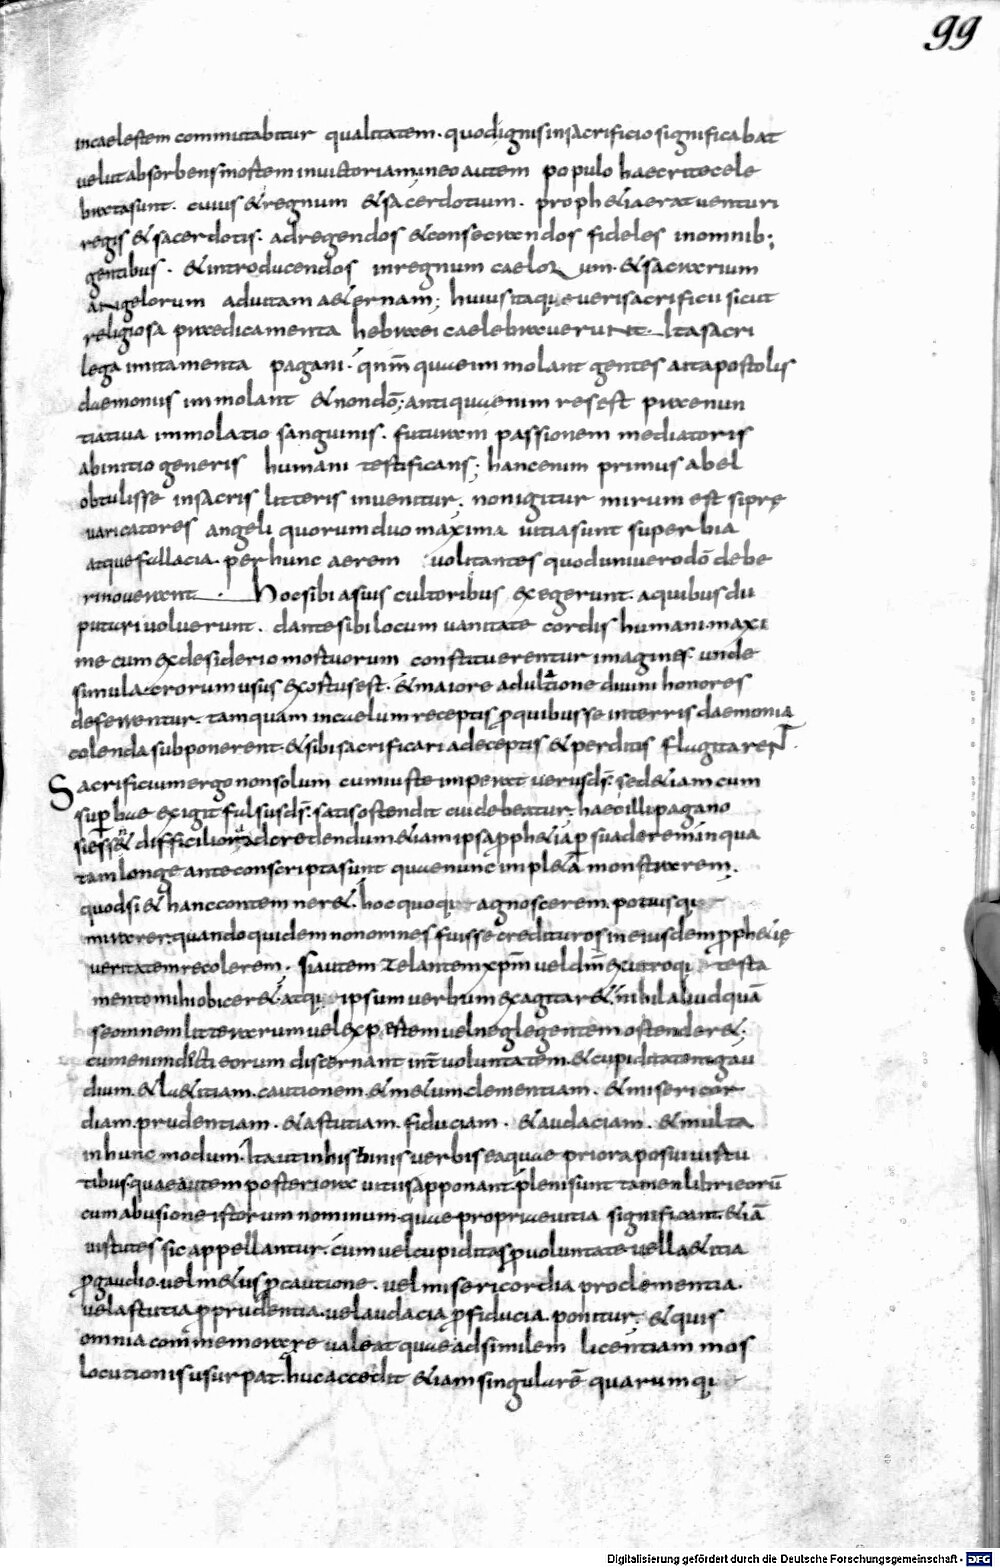 99
incaelestem commutabitur qualitatem. quodignisinsacrificiosignificabat
velutabsorbensmortem invictoriam; ineo autem populo haecritecele
bratasunt. cuius &regnum &sacerdotium. proph&iaerat venturi
regis &sacerdotis. adregendos &consecrandos fideles inomnib;
gentibus. &introducendos inregnum caelorum. &sacrarium
angelorum aduitam a&ernam; huius itaque verisacrificii sicut
religiosa praedicamenta hebraei caelebraverunt. Itasacri
lega imitamenta pagani. qnm̄ quaeimmolant gentes aitapostolus
daemoniis immolant &nondō; antiquaenim resest praenun
tiatiua immolatio sanguinis. futuram passionem mediatoris
abinitio generis humani testificans; hancenim primus abel
obtulisse insacris litteris invenitur; nonigitur mirum est siprę
varicatores angeli quorumduo maxima vitiasunt superbia
atquefallacia. perhunc aerem volitantes quoduniuerodō debe
rinoverant. Hocsibi asuis cultoribus exegerunt. aquibusdii
putarivoluerunt. dantesibilocum vanitate cordis humani. maxi
me cum exdesideriomortuorum constituerentur imagines. unde
simulacrorumusus exortusest. &maiore adulatione divini honores
deferrentur. tamquam incaelumreceptis p̱quibusse interris daemonia
colenda subponerent. &sibisacrificari adeceptis &perditis flagitarent.
Sacrificiumergo nonsolum cumiusteimperat verusds̄. sed&iam cum
sup̱bae exigit falsusds̄. satisostendit cuidebeatur; haecillipagano
siess& difficilior adcredendum &iam ipsap̱ph&iap̱suaderem. inqua
tamlonge anteconscriptasunt quaenunc impl&ā monstrarem.
quodsi & hanccontemner&. hoc quoque agnoscerem. potiusqu
mirarer. quandoquidem nonomnes fuisse credituros ineiusdemp̱ph&ię
veritatemrecolerem. Siautem zelantem xpm̄ vel dm̄ exutroque testa
mentomihi obicer&. atque ipsum verbum exagitar&. nihil aliudquā
seomnem litterarum velexp̱ertem velneglegentem ostender&;
cumenim dicti eorum discernant int̄ voluntatem. &cupiditatem. gau
dium. &la&itiam. cautionem. &m&um. clementiam. &misericor
diam. prudentiam. &astutiam. fiduciam. &audaciam. &multa
inhunc modum. Itaut inhis binis verbis eaquae priora posui virtu
tibus. quaeautem posteriora vitiisapponant. plenisunt tamen libri eorū
cum abusione istorum nominum. quae propriaevitia significant. &iā
virtutes sic appellantur. cum velcupiditas p̱voluntate vella&itia
p̱gaudio. velm&us p̱cautione. vel misericordia proclementia.
velastutia p̱prudentia. velaudacia p̱fiducia. ponitur. &quis
omnia commemorare valeat quaeadsimilem licentiam mos
locutionisusurpat. hucaccedit &iamsingularē quarumqu
Digitalisierung gefördert durch die Deutsche Forschungsgemeinschaft - DFG